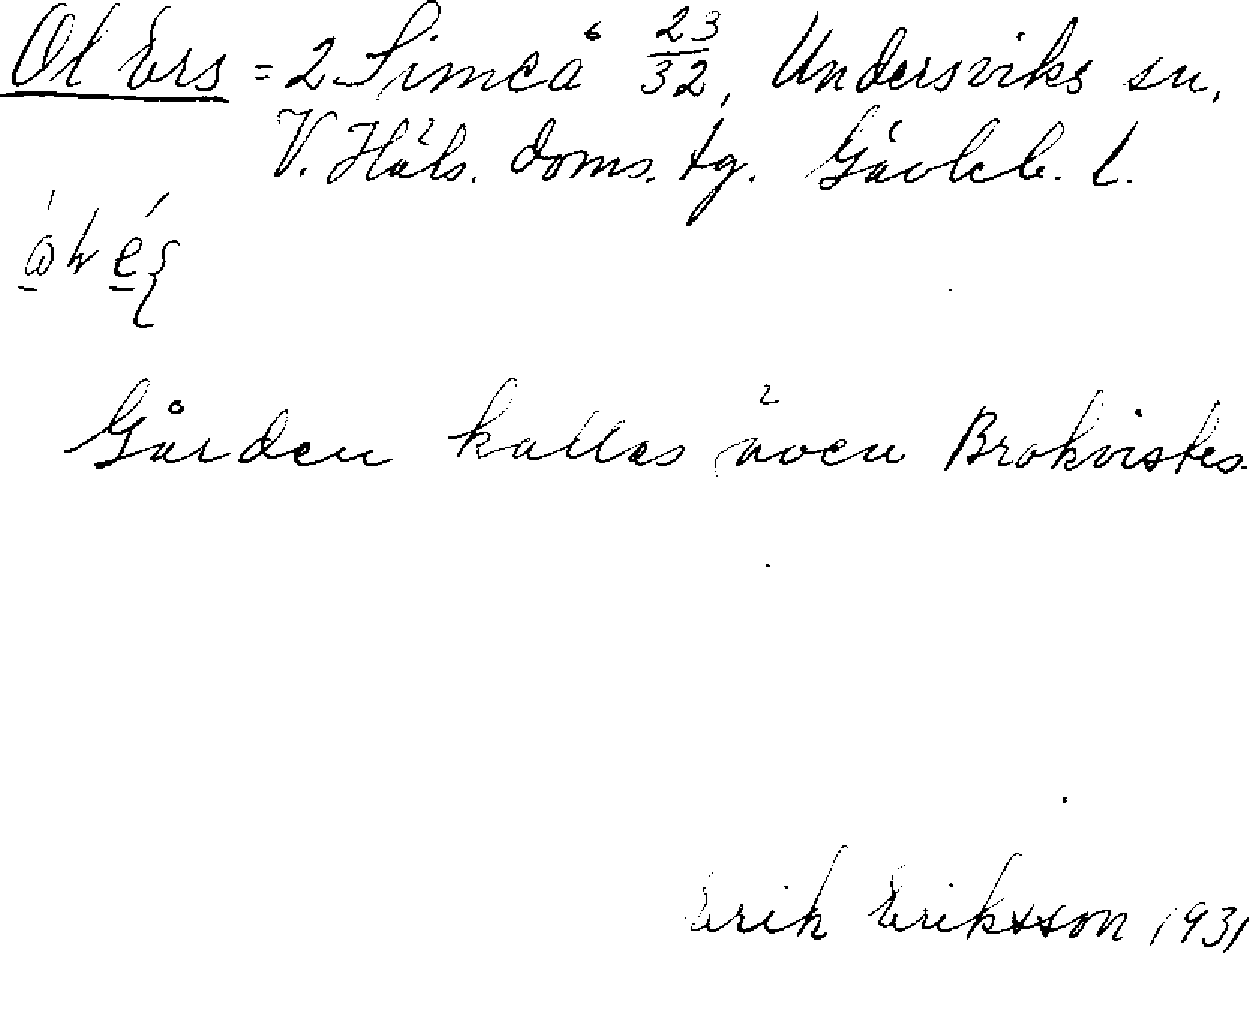 Ol Ers = 2 Simeå 23/32, Undersviks sn,
V. Häls. doms. tg. Gävleb. l.
Gården kallas även Brokvistes.
Erik Eriksson 1931